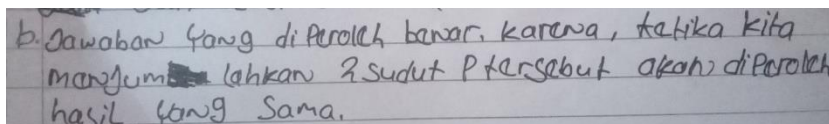 b. Jawaban yang diperoleh benar, karena, ketika kita
menjum lahkan 2 sudut P tersebut akan diperoleh
hasil yang sama.